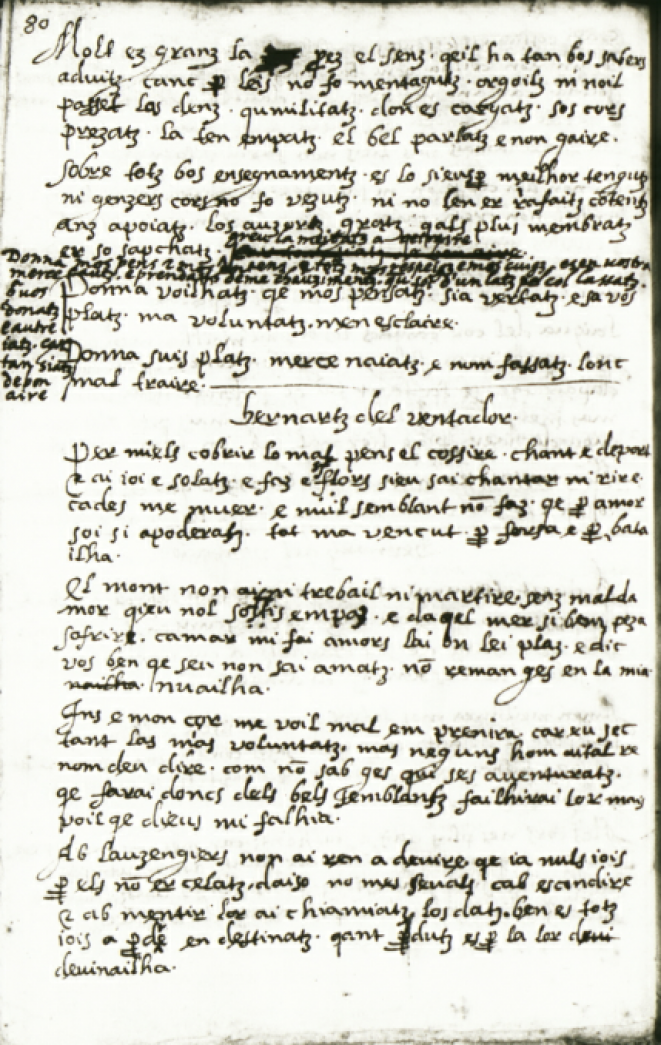 80
Moll ez granz la prez el senz qeil ha tan bos sabers
aduitz canc ꝑ leis nō fo mentagutz orgoilz ni noil
passet las denz qumilitatz don es cargatz sos cors
prezatz la ten enpatz el bel parlatz e non gaire.
Sobre totz bos ensegnamentz es lo sieus ꝑ meilhor tengutz
ni genzers cors no fo vezutz ni no len er rafaitz cōtentz
anz apoiatz los auzortz gratz qals plus membratz
er so sapchatz
Donna voilhatz qe mos pensatz sia vertatz e sa vos
platz ma voluntatz men esclaire.
Donna suis platz merce naiatz e num fassatz lonc
mal traire.
Donna
merce
buos
donatz
e autre
iatz car
tan siatz
de bon
aire
bernartz del ventador.
Per miels cobrir lo mal pens el cossire chant e deport
e ai ioi e solatz e faz esflors sieu sai chantar ni rire
cades me muer e nuil semblant nō faz qe ꝑ amor
soi si apoderatz tot ma vencut ꝑ forsa e ꝑ bata
ilha.
El mont non a trebail ni martire senz mal da
mor qieu nol sofris empaz e daqel mer si bem peza
sofrire camar mi fai amors lai on lei plaz e dic
vos ben qe seu non sai amatz nō reman ges en la mia
nailha nuailha.
Ins e mon cor me voil mal em prenira car eu sec
tant las mias voluntatz mas neguns hom aital re
nom deu dire com nō sab ges qui ses auenturatz
qe farai doncs dels bels semblantz failhirai lor mais
voil qe dieus mi falhia.
Ab lauzengiers non ai ren a devire qe ia nuls iois
ꝑ els nō er celatz daiso no mes sevals cab escondire
e ab mentir lor ai chamiatz los datz ben es totz
iois a ꝑdē en destinatz qant ꝑdutz es ꝑ la lor devi
devinailha.